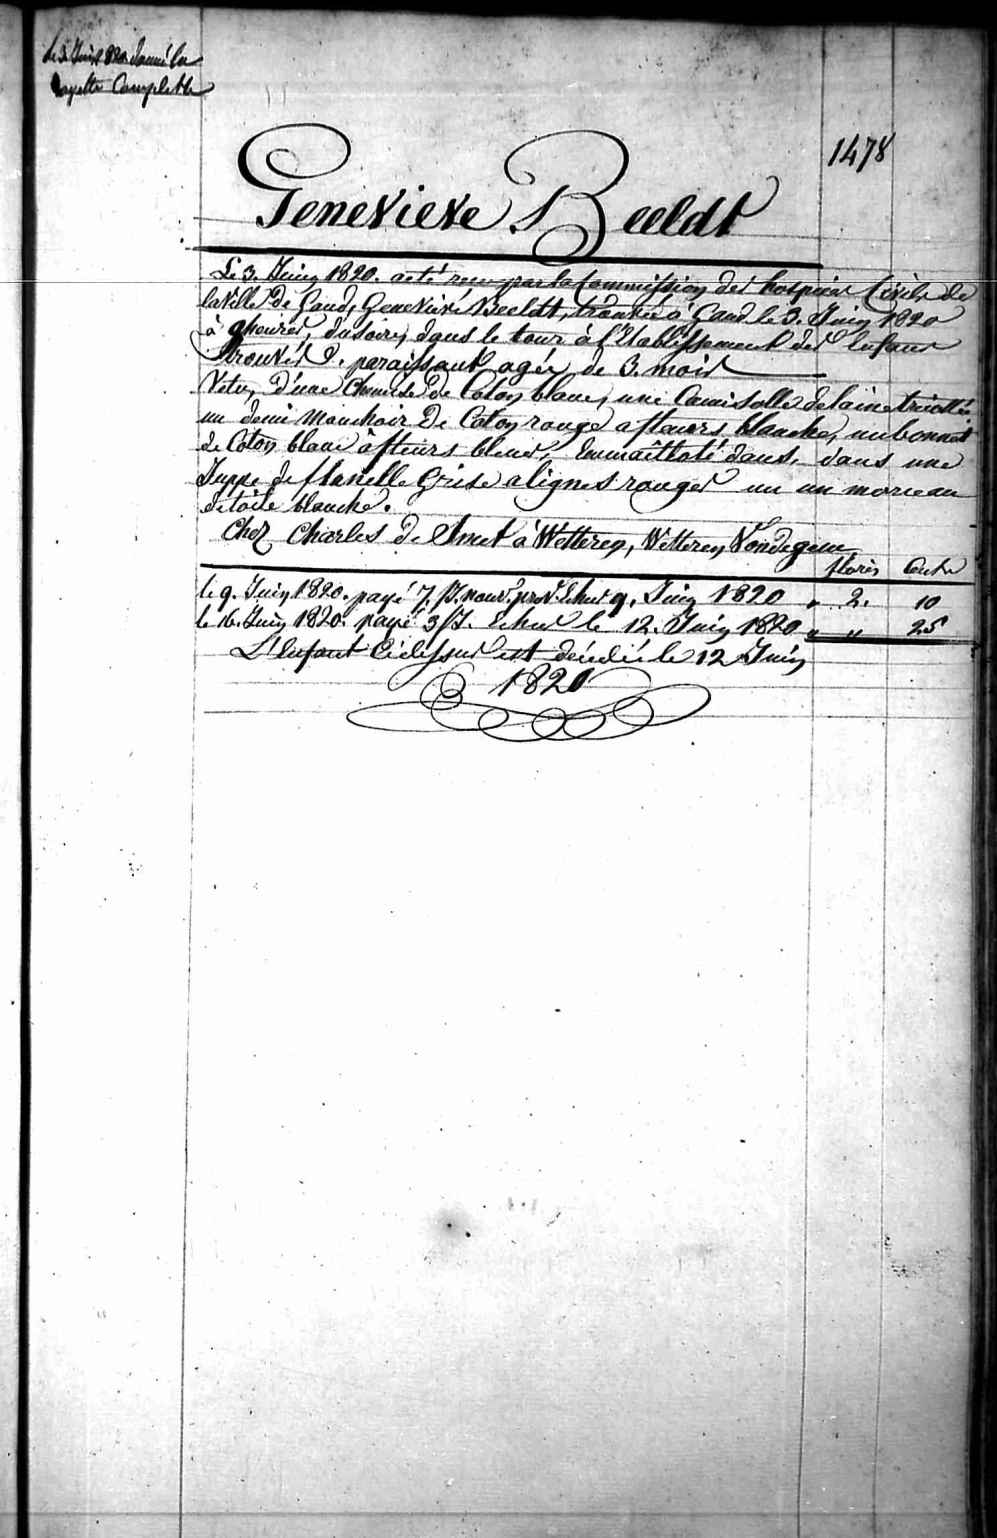 le 3. Juin 1820 donné la
layette Complette
1478
Genevieve Beeldt
Le 3. Juin 1820. a eté reçu par la Commission des hospices Civils de
la Ville de Gand, Genevieve Beeldt, trouvée à Gand le 3. Juin 1820
à 9 heures, du soir, dans le tour à l'Etablissement des Enfans
Trouvés &. paraissant agée de 3. mois
Vetu, d'une Chemise de Coton blanc, une Camisolle de laine tricottée
un demi Mouchoir De Coton rouge a fleurs blanche, un bonnet
de Coton blanc à fleurs bleues, Emmaillotté dans, dans une
Juppe de flanelle Grise a lignes rouges un un morceau
de toile blanche.
Chez Charles De Smet à Wetteren, Wetteren
florins Cents
le 9. Juin 1820. payé 7 J. nour. Echut 9. Juin 1820 " 2. 10
le 16. Juin 1820. payé 3 J. Echut le 12. Juin 1820 " " 25
L'Enfant Cidessus est décédée le 12 Juin
1820